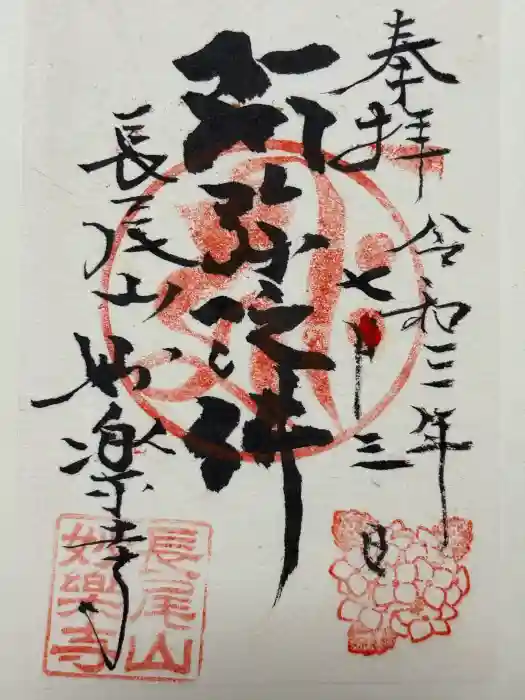 奉拝
令和三年
七月十三日
阿弥陀佛
長尾山
妙楽寺
長尾山
妙樂寺